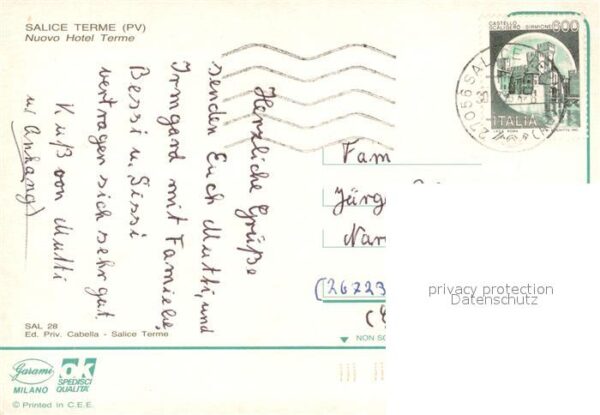 SALICE TERME (PV)
Nuovo Hotel Terme
CASTELLO
SCALIGERO - SIRMIONE
600
ITALIA
27056 SALICE
Herzliche Grüße
senden Euch Mutti, und
Irmgard mit Familie,
Bessi u. Sissi
vertragen sich sehr gut.
Kuß von Mutti
u. Anhang)
Fam
Jürg
Nar
(26723
privacy protection
Datenschutz
SAL 28
Ed. Priv. Cabella - Salice Terme
NON SC
Garami
MILANO
OK
SPEDISCI
QUALITA'
© Printed in C.E.E.